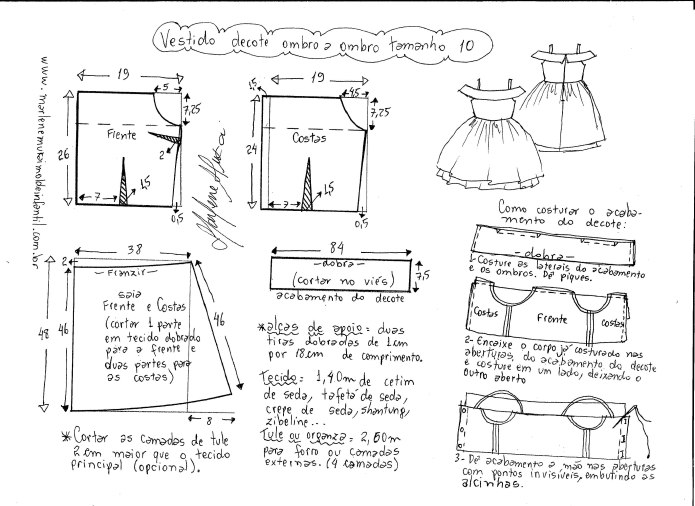 Vestido decote ombro a ombro tamanho 10
www.marlenemukaimoldeinfantil.com.br
19
5
7,25
26
Frente
2
7
1,5
0,5
Marlene Mukai
1,5
19
4,5
7,25
24
Costas
7
1,5
0,5
38
2
Franzir
48
46
saia
Frente e Costas
(cortar 1 parte
em tecido dobrado
para a frente e
duas partes para
as costas)
46
8
* Cortar as camadas de tule
2 cm maior que o tecido
principal (opcional).
84
dobra
(cortar no viés)
7,5
acabamento do decote
* alças de apoio = duas
tiras dobradas de 1cm
por 18cm de comprimento.
Tecido = 1,40m de cetim
de seda, tafetá de seda,
crepe de seda, shantung,
zibeline...
Tule ou organza = 2,60m
para forro ou camadas
externas. (4 camadas)
Como costurar o acaba-
mento do decote:
dobra
1- Costure as laterais do acabamento
e os ombros. Dê piques.
Costas
Frente
costas
2- Encaixe o corpo já costurado nas
aberturas, do acabamento do decote
e costure em um lado, deixando o
outro aberto
3- Dê acabamento a mão nas aberturas
com pontos invisíveis, embutindo as
alcinhas.